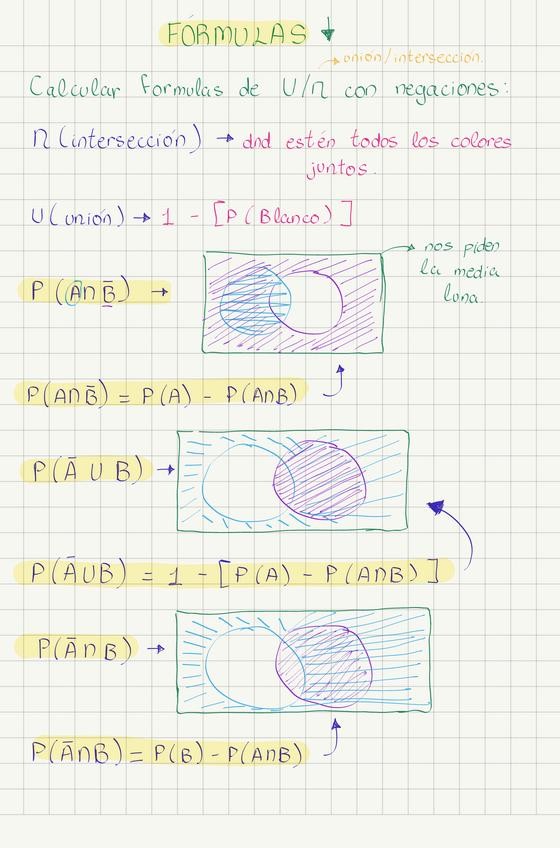 FÓRMULAS ↓
→ unión/intersección.
Calcular formulas de U/∩ con negaciones:
∩ (intersección) → dnd estén todos los colores
juntos.
U (unión) → 1 - [P(Blanco)]
nos piden
la media
luna.
P(A∩B̄) →
P(A∩B̄) = P(A) - P(A∩B)
P(Ā U B) →
P(ĀUB) = 1 - [P(A) - P(A∩B)]
P(Ā∩B) →
P(Ā∩B) = P(B) - P(A∩B)